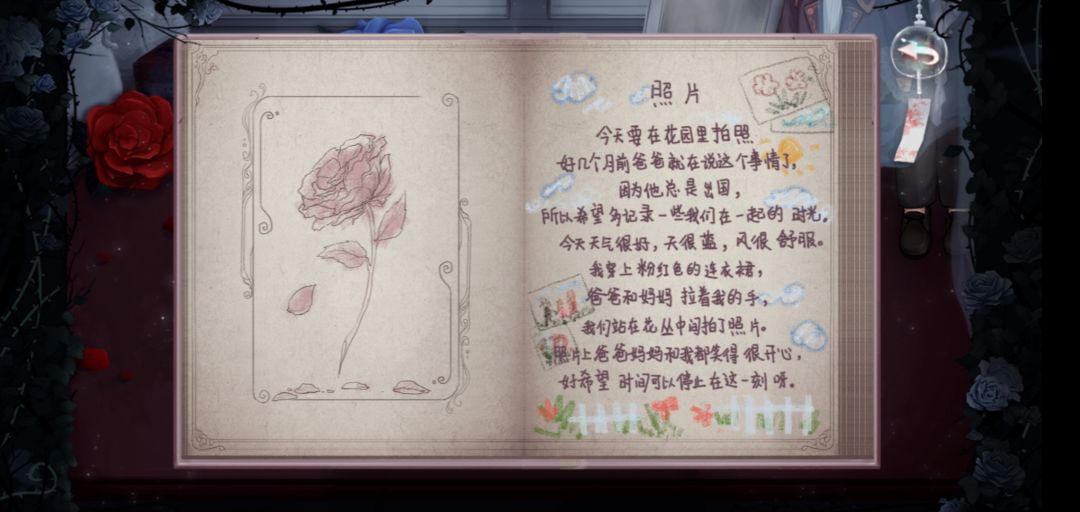 照片
今天要在花园里拍照
好几个月前爸爸就在说这个事情了，
因为他总是出国，
所以希望多记录一些我们在一起的时光。
今天天气很好，天很蓝，风很舒服。
我穿上粉红色的连衣裙，
爸爸和妈妈拉着我的手，
我们站在花丛中间拍了照片。
照片上爸爸妈妈和我都笑得很开心，
好希望时间可以停止在这一刻呀。